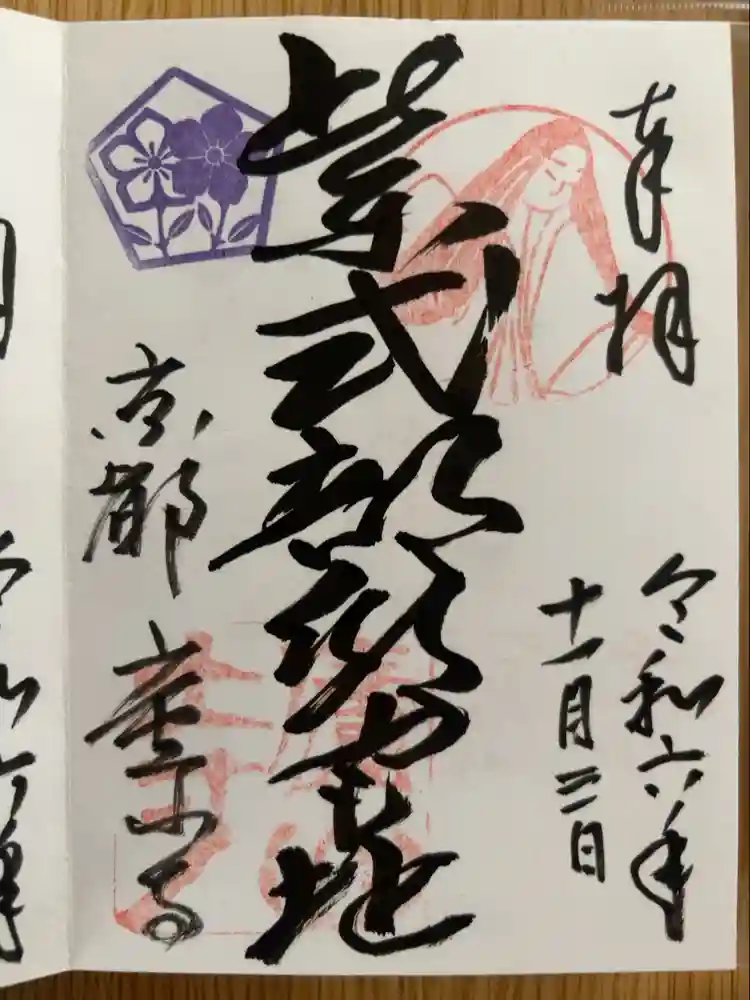 奉拝
令和六年
十一月三日
紫式部邸宅址
京都 廬山寺